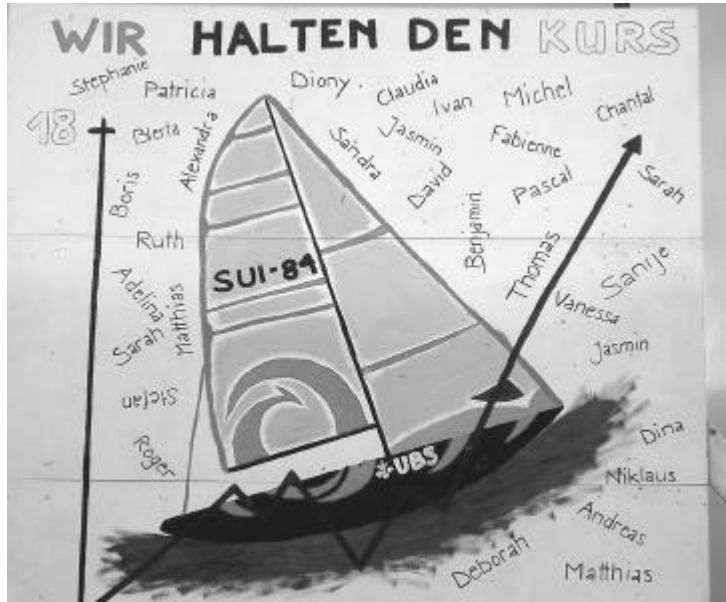 WIR HALTEN DEN KURS
Stephanie
Patricia
Diony.
Claudia
Ivan
Michel
Chantal
18
Blerta
Alexandra
Sandra
Jasmin
Fabienne
Sarah
Boris
David
Pascal
Ruth
Benjamin
Thomas
Sanije
SUI-84
Adelina
Matthias
Vanessa
Sarah
Jasmin
Stefan
Roger
UBS
Dina
Niklaus
Andreas
Deborah
Matthias